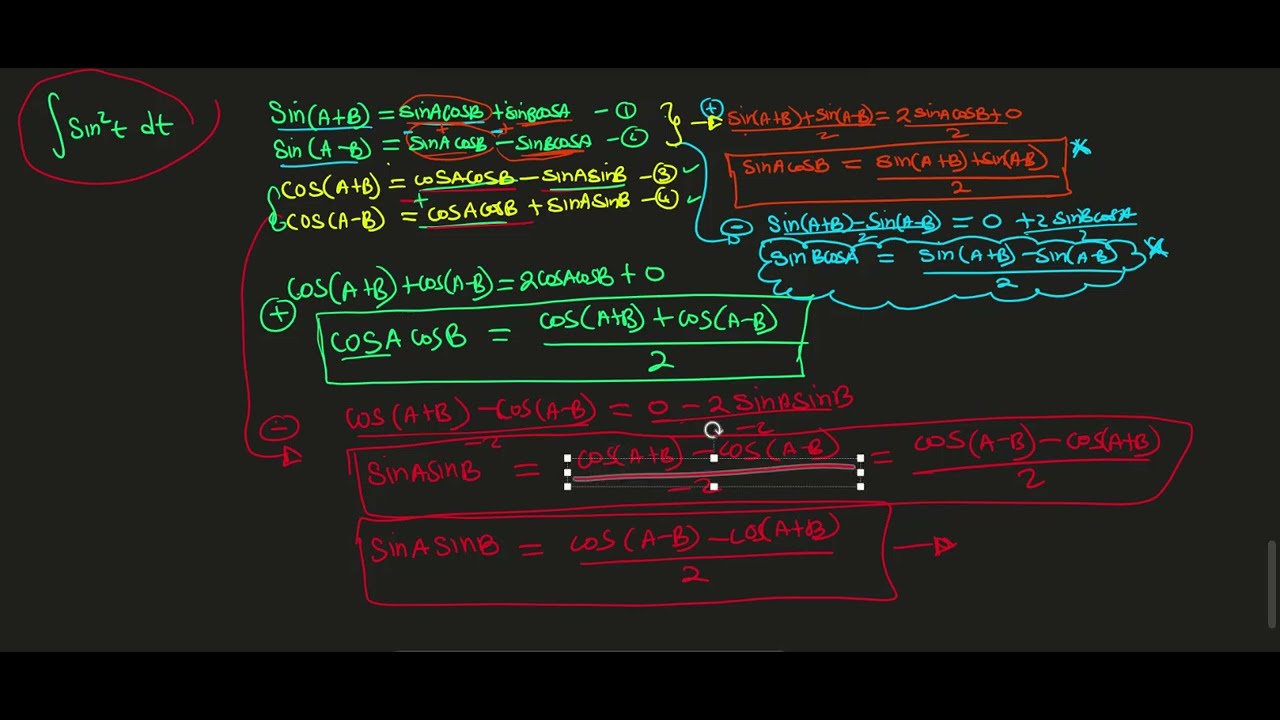 ∫ Sin²t dt
Sin(A+B) = SinACosB + SinBCosA - ①
Sin(A-B) = SinACosB - SinBCosA - ②
Cos(A+B) = CosACosB - SinASinB - ③ ✓
Cos(A-B) = CosACosB + SinASinB - ④ ✓
⊕ Sin(A+B)+Sin(A-B) = 2SinACosB+0
2 2
SinACosB = Sin(A+B)+Sin(A-B)
2
⊖ Sin(A+B)-Sin(A-B) = 0 + 2SinBCosA
2 2
SinBCosA = Sin(A+B)-Sin(A-B)
2
⊕ Cos(A+B)+Cos(A-B) = 2CosACosB + 0
CosACosB = Cos(A+B)+Cos(A-B)
2
⊖ Cos(A+B)-Cos(A-B) = 0 - 2SinASinB
-2 -2
SinASinB = Cos(A+B)-Cos(A-B) = Cos(A-B)-Cos(A+B)
-2 2
SinASinB = Cos(A-B)-Cos(A+B)
2